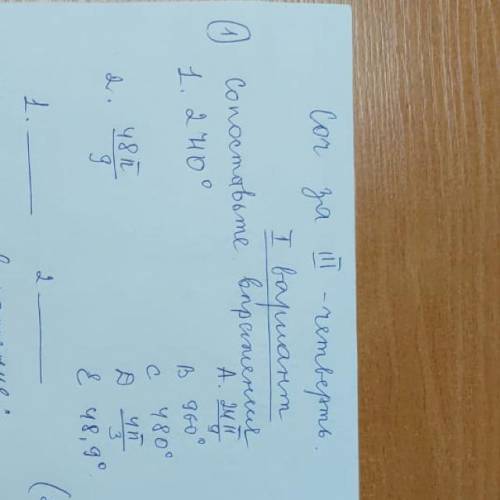 Соч за III - четверть.
I вариант
① Сопоставьте выражения
1. 240° A. 24π/9
B 960°
2. 48π/9 C 480°
D 4π/3
E 48,9°
1. ____ 2 ____